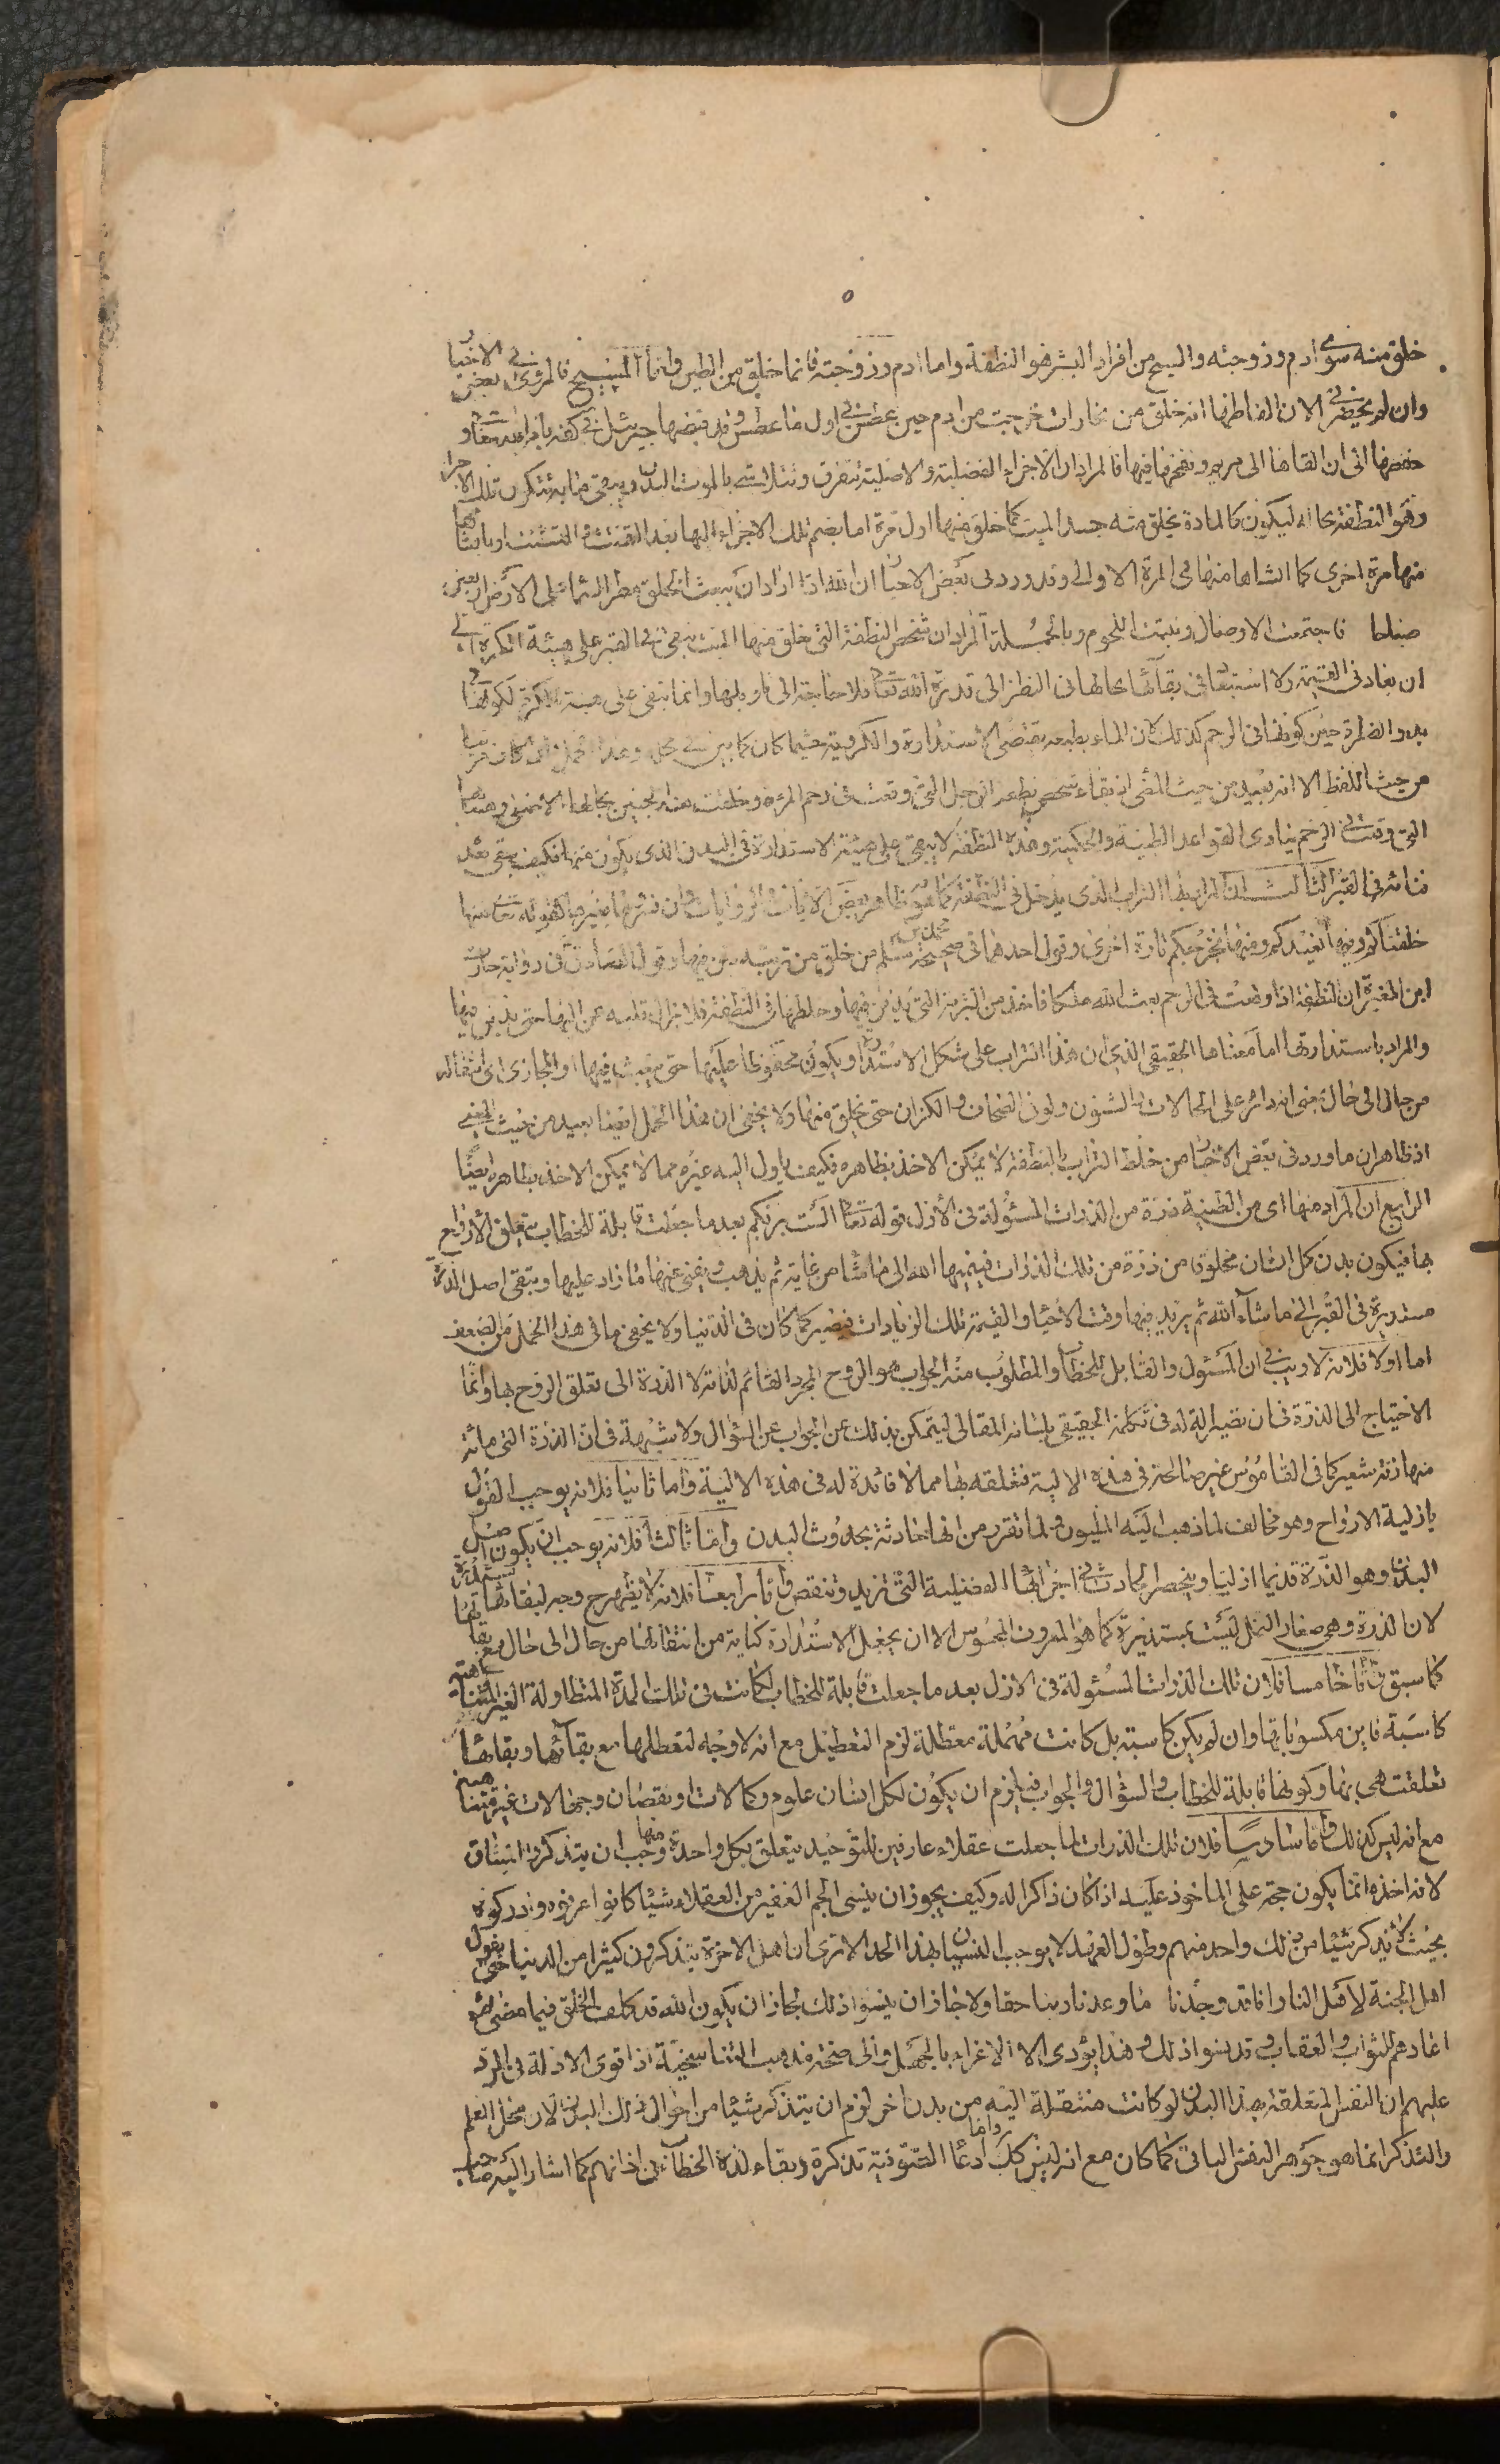 خلق منه سوى ادم وزوجته والمسيح من افراد البشر هو النطفة واما ادم وزوجته فانما خلق من الطين واما المسيح فالمروى في بعض الاخبا
وان لم يحضرني الان الفاظها انه خلق من بخارات خرجت من ادم حين عطس في اول ما عطس وقد قبضها جبرئيل في كفه بامر الله تعا و
حفظها الى ان القاها الى مريم ونفخها فيها فالمراد ان الاجزاء الفضلية والاصلية تتفرق وتتلاشى بالموت البدن ويبقى ما به تتكون تلك الاجزاء
وهو النطفة بحاله ليكون كالمادة يخلق منه جسد الميت كما خلق منها اول مرة اما بضم تلك الاجزاء اليها بعد التفتت والتشتت او بانشائها
منها مرة اخرى كما انشاها منها في المرة الاولى وقد ورد في بعض الاخبا ان الله اذا اراد ان يبعث الخلق مطر السما على الارض اربعين
صباحا فاجتمعت الاوصال ونبتت اللحوم وبالجملة المراد ان شخص النطفة التي خلق منها الميت يبقى في القبر على هيئة الكرة الى
ان يعاد في القيمة ولا استبعاد في بقائها بحالها في النظر الى قدرة الله تعا فلا حاجة الى تاويلها وانما تبقى على هيئة الكرة لكونها
بدو الفطرة حين كونها في الرحم كذلك لان الماء بطبعه يقتضى الاستدارة والكروية حيثما كان كما بين في محله وهذا المحمل وان كان قريبا
من حيث اللفظ الا انه بعيد من حيث المعنى اذ بقاء شخص نطفة الرجل التي وقعت في رحم المرئة وخلقت منه الجنين بحالها الا تمنى وهيئتها
التي وقعت في الرحم ينافي القواعد الطبية والحكمية وهذه النطفة لا يبقى على هيئة الاستدارة في البدن الذي يكون منها فكيف يبقى بعد
فنائه في القبر الثالث ان المراد بها التراب الذي يدخل في النطفة كما هو ظاهر بعض الايات والروايات وان فسرها بغيره كقوله تعا منها
خلقناكم وفيها نعيدكم ومنها نخرجكم تارة اخرى وقول احدهما في صحيحة محمد بن مسلم من خلق من تربة دفن فيها وقول الصادق في رواية حارث
ابن المغيرة ان النطفة اذا وقعت في الرحم بعث الله ملكا فاخذ من التربة التي يدفن فيها وخلطها في النطفة فلا يزال قلبه يحن اليها حتى يدفن فيها
والمراد باستدارتها اما معناها الحقيقي الذي ان هذا التراب على شكل الاستدارة ويكون محفوظا عليها حتى يبعث فيها او المجازى اى انتقاله
من حال الى حال فى انه دائر على الحالات والشئون ولون الضحاف والكزان حتى يخلق منها ولا يخفى ان هذا المحمل ايضا بعيد من حيث المعنى
اذ ظاهر ان ما ورد في بعض الاخبا من خلط التراب بالنطفة لا يمكن الاخذ بظاهره فكيف ياول اليه غيره مما لا يمكن الاخذ بظاهره ايضا
الرابع ان المراد منها اى من الطينة ذرة من الذرات المسئولة في الازل قوله تعا الست بربكم بعد ما جعلت قابلة للخطاب بتعلق الارواح
بها فيكون بدن كل انسان مخلوقا من ذرة من تلك الذرات فينميها الله الى ما شاء من غاية ثم يذهب ويفنى عنها ما زاد عليها ويبقى اصل الذرة
مستديرة في القبر الى ما شاء الله ثم يزيد فيها وقت الاحياء والقيمة تلك الزيادات فيصير كما كان في الدنيا ولا يخفى ما في هذا المحمل من الضعف
اما اولا فلانه لا ريب في ان المسئول والقابل للخطاب والمطلوب منه الجواب هو الروح المجرد القائم لذاته لا الذرة الى تعلق الروح بها وانما
الاحتياج الى الذرة في ان تصير الة له في تكلمه الحقيقي بلسانه المقالى ليتمكن بذلك عن الجواب عن السؤال ولا شبهة في ان الذرة التي مائة
منها زنة شعير كما في القاموس غير صالحة في هذه الالية فتعلقه بها مما لا فائدة له في هذه الالية واما ثانيا فلانه يوجب القول
بازلية الارواح وهو مخالف لما ذهب اليه المليون ولما تقرر من انها حادثة بحدوث البدن واما ثالثا فلانه يوجب ان يكون اصل
البدن وهو الذرة قديما ازليا وينحصر الحادث في اجزائها الفضلية التي تزيد وتنقص واما رابعا فلانه لا يظهر ح وجه لبقائها مستديرة
لان الذرة وهي صغار النمل ليست بمستديرة كما هو المعروف المحسوس الا ان يجعل الاستدارة كناية من انتقالها من حال الى حال مع بقا
كما سبق واما خامسا فلان تلك الذرات المسئولة في الازل بعد ما جعلت قابلة للخطاب لكانت في تلك المدة المتطاولة الغير المتناهية
كاسبة فاين مكسوباتها وان لم يكن كاسبة بل كانت مهملة معطلة لزم التعطيل مع انه لا وجه لتعطلها مع بقائها وبقاء ما
تعلقت هي بها وكونها قابلة للخطاب والسؤال والجواب فيلزم ان يكون لكل انسان علوم وكمالات او نقصان وجهالات غير متناهية
مع انه ليس كذلك واما سادسا فلان تلك الذرات لما جعلت عقلاء عارفين للتوحيد يتعلق بكل واحدة منها وجب ان يتذكروا الميثاق
لانه اخذه انما يكون حجة على الماخوذ عليه اذا كان ذاكرا له وكيف يجوز ان ينسى الجم الغفير من العقلاء شيئا كانوا عرفوه وادركوه
بحيث لا يذكر شيئا من ذلك واحد منهم وطول العهد لا يوجب النسيان بهذا الحد الا ترى ان اهل الاخرة يتذكرون كثيرا من الدنيا حتى يقول
اهل الجنة لاهل النار انا قد وجدنا ما وعدنا ربنا حقا ولا جاز ان ينسوا ذلك لجاز ان يكون الله قد كلف الخلق فيما مضى ثم
اعادهم للثواب والعقاب وقد نسوا ذلك وهذا يؤدى الا الاغراء بالجهل والى صحة مذهب التناسخية اذ اقوى الادلة في الرد
عليهم ان النفس المتعلقة بهذا البدن لو كانت منتقلة اليه من بدن اخر لزم ان يتذكر شيئا من احوال ذلك البدن لان محل العلم
والتذكر انما هو جوهر النفس الباقى كما كان مع انه ليس كك واما ادعا الصوفية تذكره وبقاء لذة الخطاب في اذانهم كما اشار اليه صاحب